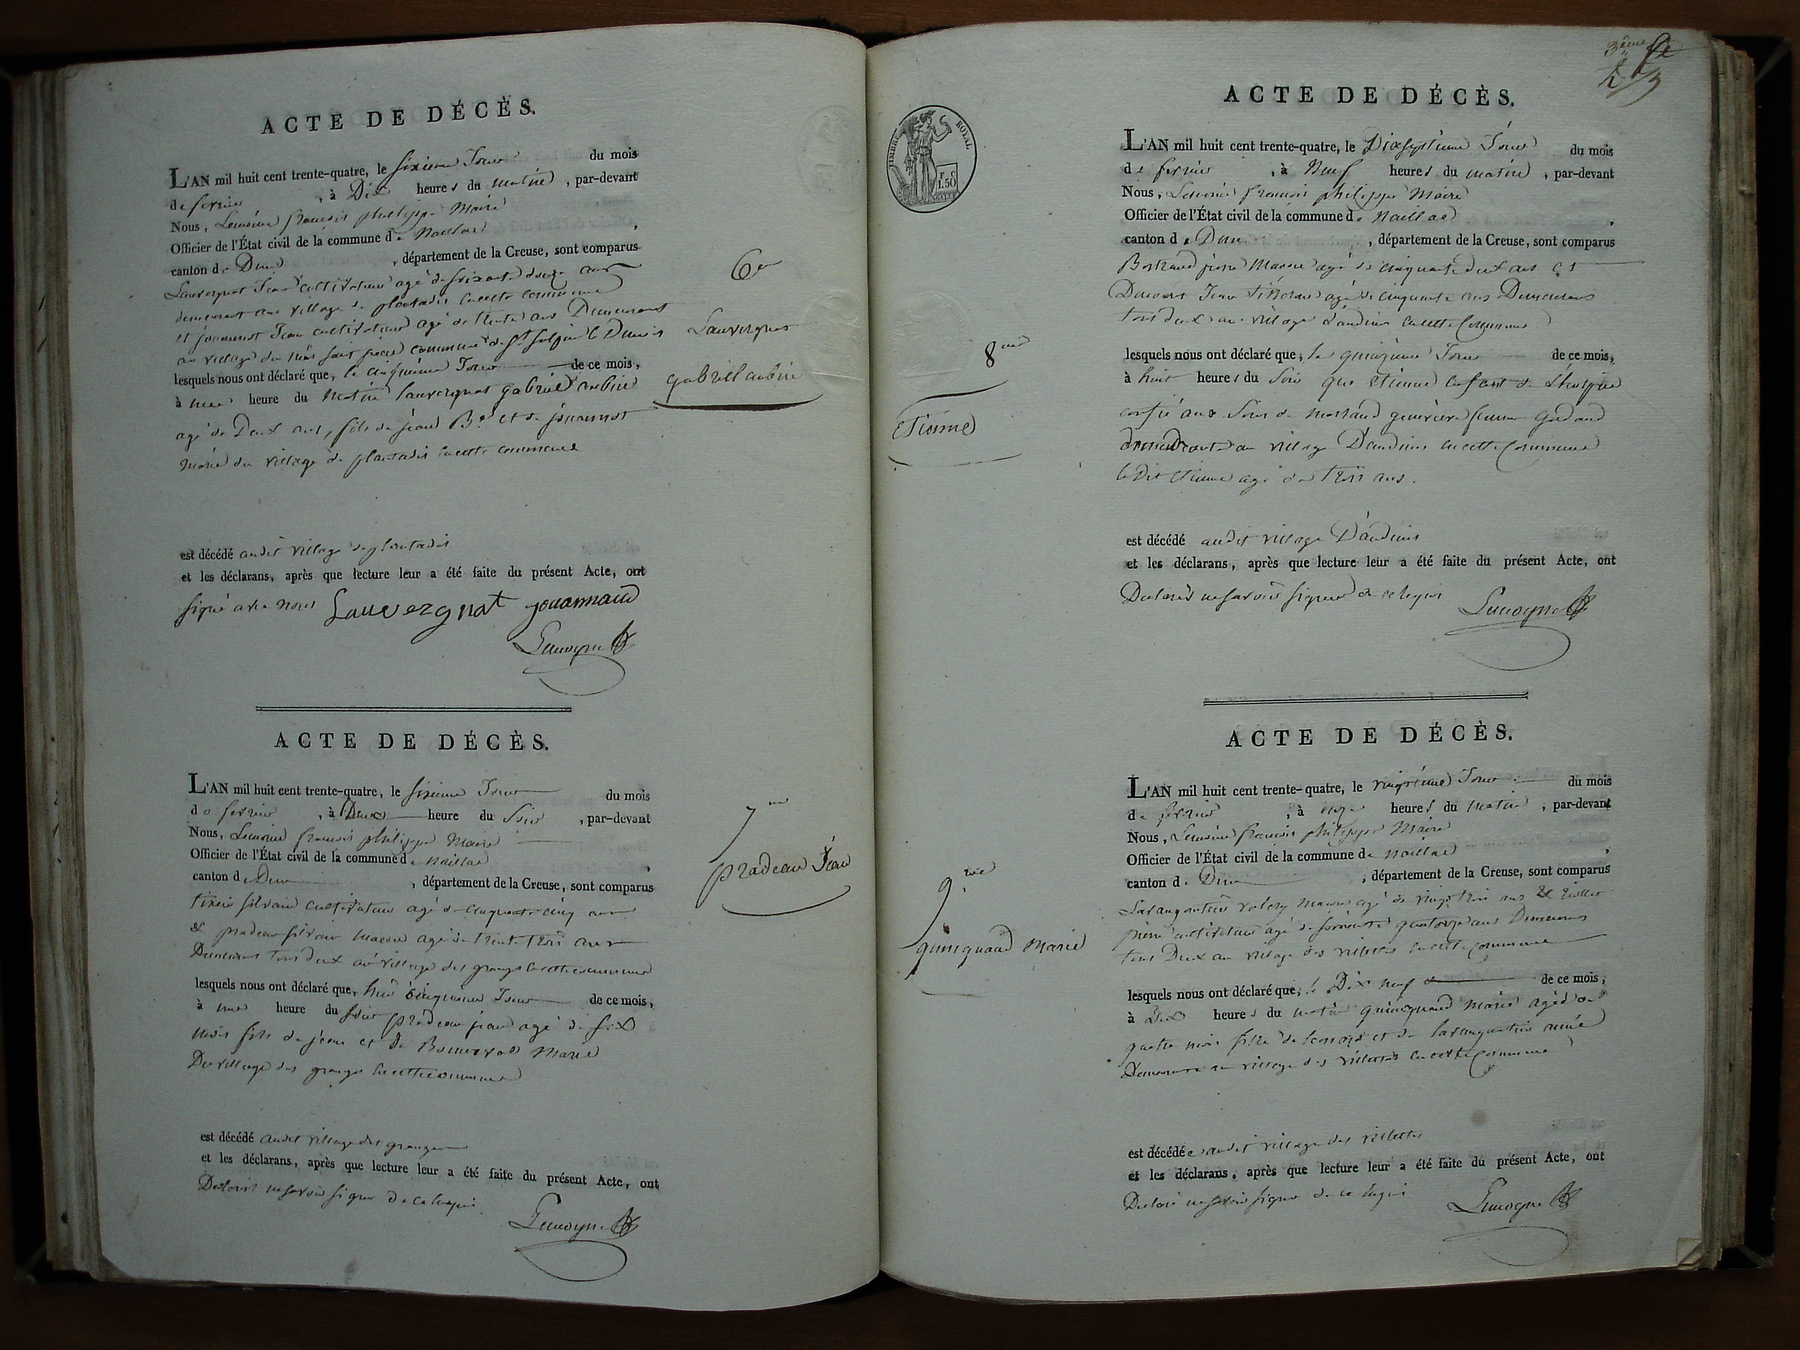 ACTE DE DÉCÈS.
L'AN mil huit cent trente-quatre, le sixieme Jour du mois
de fevrier, à Dix heures du matin, par-devant
Nous, Lemoine françois philippe Maire
Officier de l'État civil de la commune de Naillat,
canton de Dun, département de la Creuse, sont comparus
Lauvergnat Jean cultivateur agé de soixante douze ans
demeurant au village de plantadis en cette commune
et jouannot Jean cultivateur agé de trente ans Demeurant
au village du commune de St sulpice le Dunois
lesquels nous ont déclaré que, le cinquieme Jour de ce mois,
à heure du Matin Lauvergnat gabriel aubin
agé de Deux ans, fils de jean Bte et de jouannot
marie du village de plantadis en cette commune
est décédé audit village de plantadis
et les déclarans, après que lecture leur a été faite du présent Acte, ont
signé avec nous Lauvergnat jouannaud
Lemoyne
6e
Lauvergnat
gabriel aubin
ACTE DE DÉCÈS.
L'AN mil huit cent trente-quatre, le sixieme Jour du mois
de fevrier, à Deux heure du Soir, par-devant
Nous, Lemoine françois philippe Maire
Officier de l'État civil de la commune de Naillat,
canton de Dun, département de la Creuse, sont comparus
silvain cultivateur agé de cinquante cinq ans
& pradeau silvain macon agé de trente trois ans
Demeurant tous deux au village des granges en cette commune
lesquels nous ont déclaré que, cinquieme Jour de ce mois,
à une heure du soir pradeau jean agé de six
mois fils de jean et de Marie
Du village des granges en cette commune
est décédé audit village des granges
et les déclarans, après que lecture leur a été faite du présent Acte, ont
Declaré ne savoir signer de ce requis
Lemoyne
7me
pradeau Jean
3eme
TIMBRE ROYAL
F. 1.50
ACTE DE DÉCÈS.
L'AN mil huit cent trente-quatre, le Dixseptieme Jour du mois
de fevrier, à Neuf heures du matin, par-devant
Nous, Lemoine francois philippe Maire
Officier de l'État civil de la commune de Naillat,
canton de Dun, département de la Creuse, sont comparus
Bertrand pierre Macon agé de cinquante deux ans &
Jean agé de cinquante ans Demeurant
tous deux au village en cette Commune
lesquels nous ont déclaré que, le quinzieme Jour de ce mois,
à huit heures du Soir que Etienne enfant de L'hospice
confié aux Soins de femme
demeurant au village en cette Commune
le Dit Etienne agé de trois ans.
est décédé audit village
et les déclarans, après que lecture leur a été faite du présent Acte, ont
Declaré ne savoir signer de ce requis
Lemoyne
8me
Etienne
ACTE DE DÉCÈS.
L'AN mil huit cent trente-quatre, le vingtieme Jour du mois
de fevrier, à onze heures du matin, par-devant
Nous, Lemoine françois philippe Maire
Officier de l'État civil de la commune de Naillat,
canton de Dun, département de la Creuse, sont comparus
macon agé de vingt trois ans &
pierre cultivateur agé de soixante quatorze ans Demeurant
tous Deux au village des villettes en cette commune
lesquels nous ont déclaré que, le Dix neuf de ce mois,
à Dix heures du matin quinquaud Marie agée de
quatre mois fille de leonard et de
Demeurant au village des villettes en cette Commune
est décédée audit village des villettes
et les déclarans, après que lecture leur a été faite du présent Acte, ont
Declaré ne savoir signer de ce requis
Lemoyne
9me
quinquaud Marie